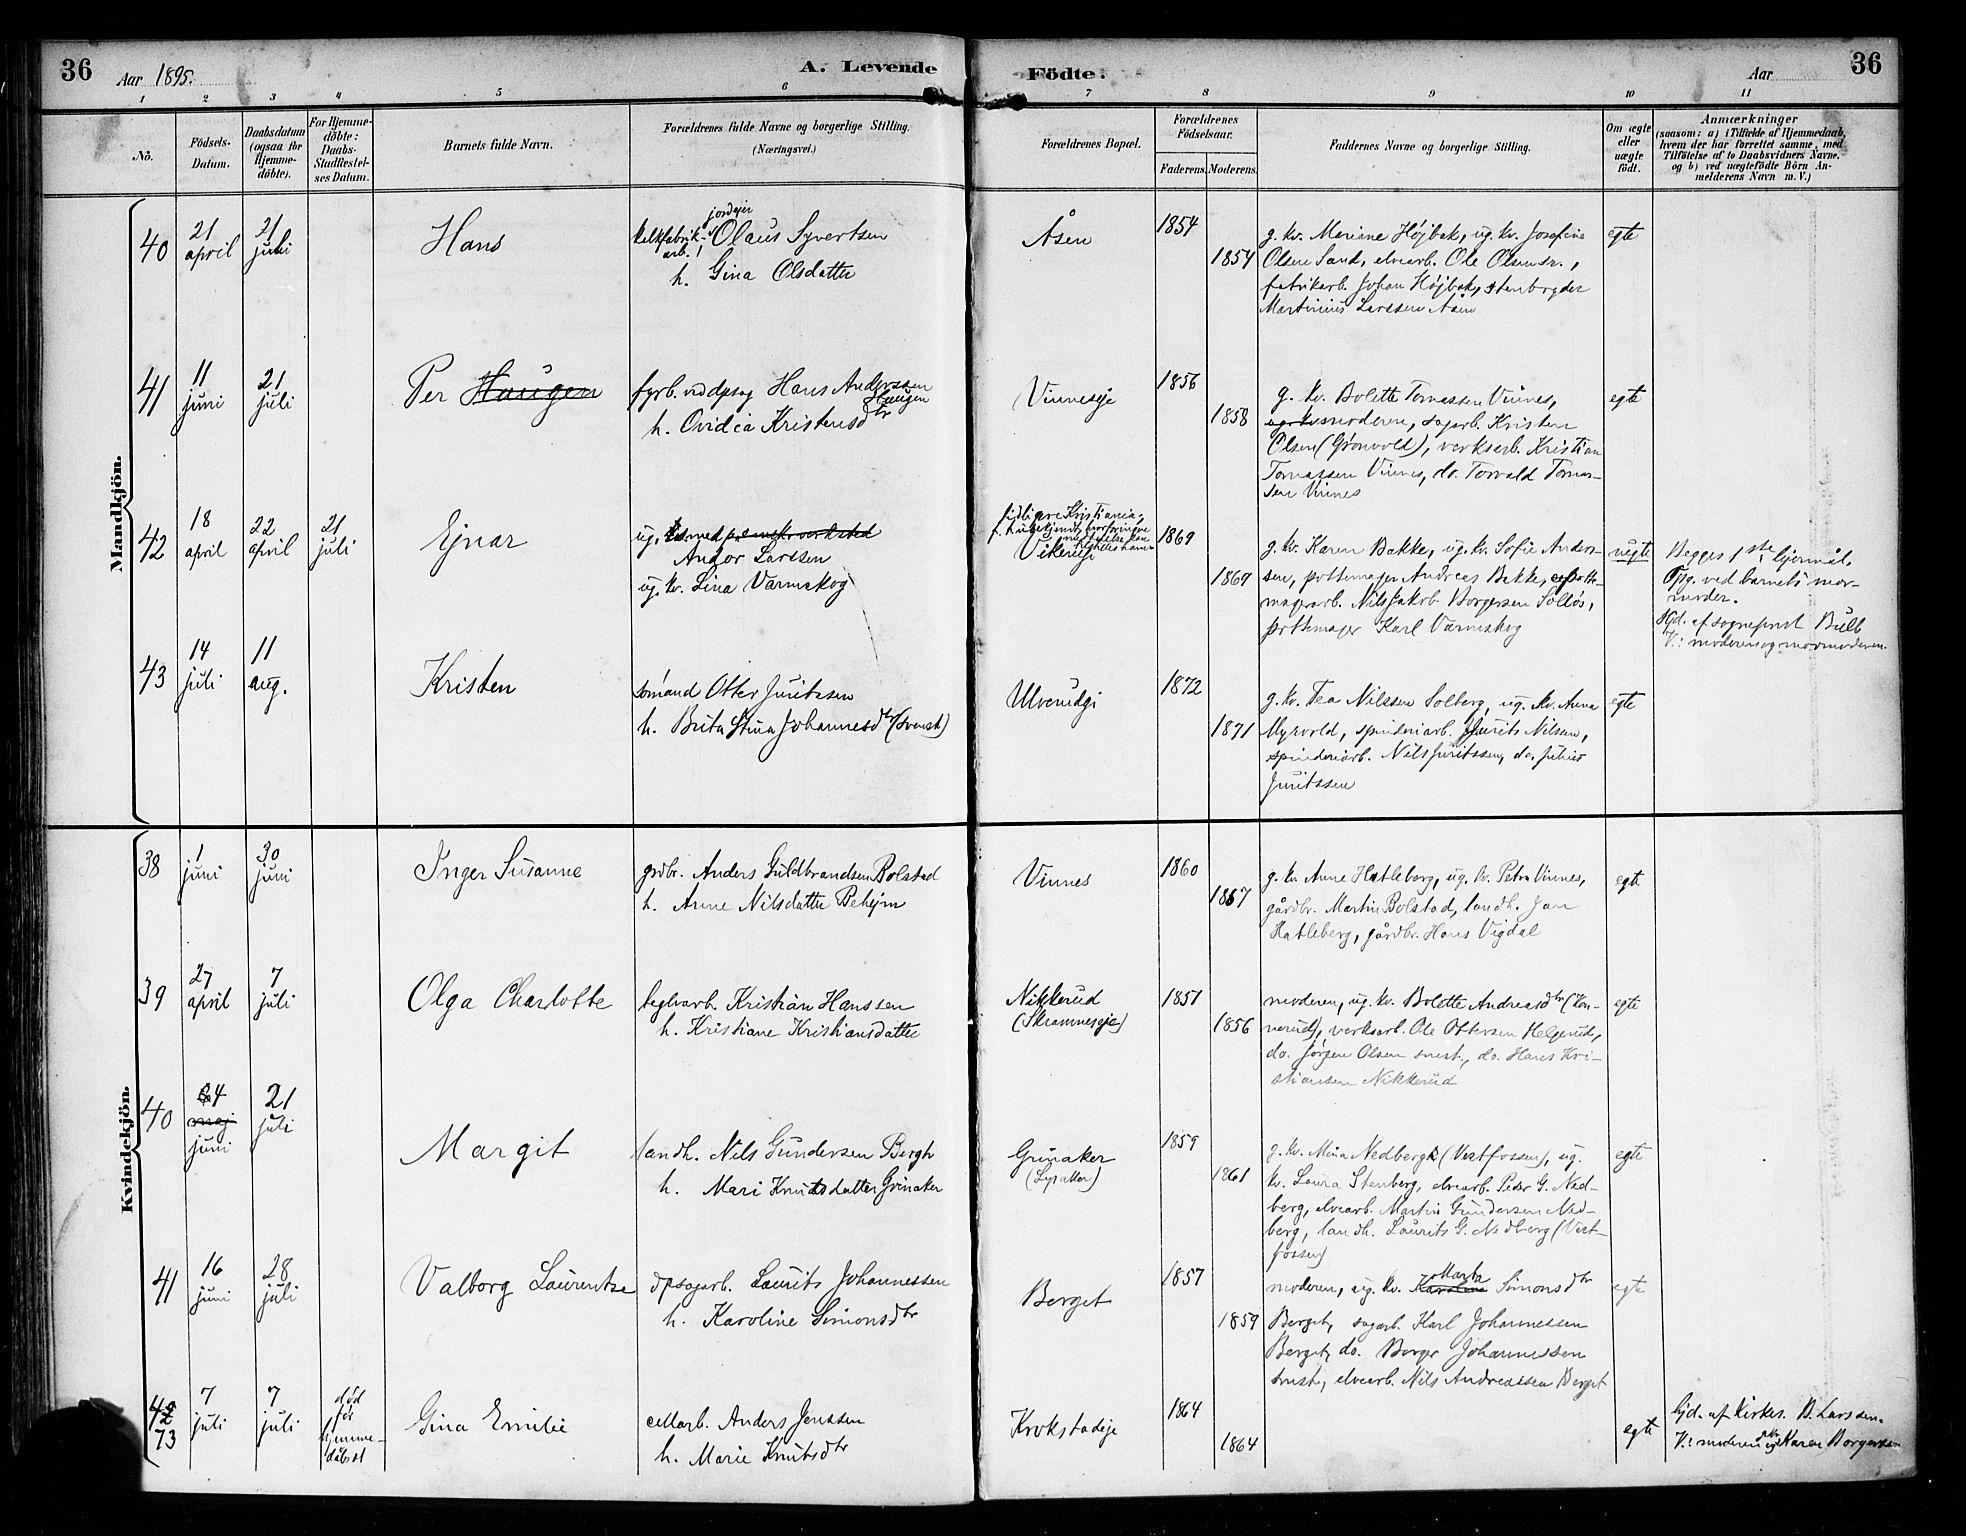 36
Aar 1895.
A. Levende
Födte.
Aar
36
1
2
3
4
5
6
7
8
9
10
11
No.
Födsels-
Datum.
Daabsdatum
(ogsaa for
Hjemme-
döbte).
For Hjemme-
döbte:
Daabs-
Stadfæstel-
ses Datum.
Barnets fulde Navn.
Forældrenes fulde Navne og borgerlige Stilling.
(Næringsvei.)
Forældrenes Bopæl.
Forældrenes
Födselsaar.
Faderens.
Moderens.
Faddernes Navne og borgerlige Stilling.
Om ægte
eller
uægte
födt.
Anmærkninger
(saasom: a) i Tilfælde af Hjemmedaab,
hvem der har forrettet samme, med
Tilföielse af to Daabsvidners Navne,
og b) ved uægtefödte Börn An-
melderens Navn m. V.)
Mandkjön.
40
21
april
21
juli
Hans
jordejer
kalkfabrik-
arb.
Olaus Syvertsen
h. Gina Olsdatter
Åsen
1854
1854
g. kv. Mariane Højbak, ug. kv. Josefine
Olsen Sand, elvearb. Ole Olsen sr.,
fabrikarb. Johan Højbak, stenbryder
Martinius Larssen Åsen
egte
41
11
juni
21
juli
Per Haugen
fyrb. vid dpsag Hans Anderssen
Haugen
h. Ovidia Kristensdtr
Vinneseje
1856
1858
g. kv. Bolette Tomassen Vinnes,
ug. kv. moderen, sagarb. Kristen
Olsen (Grønvold), verksarb. Kristian
Tomassen Vinnes, do. Torvald Tomas-
sen Vinnes
egte
42
18
april
22
april
21
juli
Ejnar
ug. smed
Andor Larssen
ug. kv. Lina Varmskog
tidligere Kristiania,
Vikereje
1869
1869
g. kv. Karen Bakke, ug. kv. Sofie Anders-
sen, pottemager Andreas Bakke, potte-
magerarb. Nils Jakob Borgersen Solløs,
pottemager Karl Varmskog
uegte
Begges 1ste lejermål.
Opg. ved barnets mor-
moder.
Hjd. af sogneprest Bull
V.: moderen og mormoderen.
43
14
juli
11
aug.
Kristen
sømand Otter Juritssen
h. Brita Stina Johannesdtr (svensk)
Ulverudej
1872
1871
g. kv. Tea Nilssen Solberg, ug. kv. Anna
Myrvold, spinderiarb. Jurits Nilsen,
spinderiarb. Nils Juritssen, do. Julius
Juritssen
egte
Kvindekjön.
38
1
juni
30
juni
Inger Susanne
grdbr. Anders Guldbrandsen Bolstad
h. Anne Nilsdatter Behejm
Vinnes
1860
1867
g. kv. Anne Hatleberg, ug. kv. Petra Vinnes,
gårdbr. Martin Bolstad, landh. Jan
Hatleberg, gårdbr. Hans Vigdal
egte
39
27
april
7
juli
Olga Charlotte
teglvarb. Kristian Hanssen
h. Kristiane Kristiansdatter
Nikkerud
(Skramneseje)
1851
1856
moderen, ug. kv. Bolette Andreasdtr (Kon-
nerud), verksarb. Ole Ottersen Helgerud,
do. Jørgen Olsen smst., do. Hans Kri-
stiansen Nikkerud
egte
40
4
maj
juni
21
juli
Margit
landh. Nils Gundersen Bergh
h. Mari Knutsdatter Grinaker
Grinaker
(Lysaker)
1859
1861
g. kv. Mina Nedberg (Vestfossen), ug.
kv. Laura Stenberg, elvearb. Peder G. Ned-
berg, elvearb. Martin Gundersen Ned-
berg, landh. Laurits G. Nedberg (Vest-
fossen)
egte
41
16
juni
28
juli
Valborg Laurentse
dpsagarb. Laurits Johannessen
h. Karoline Simonsdtr
Berget
1857
1859
moderen, ug. kv. Karoline Marta Simonsdtr
Berget, sagarb. Karl Johannessen
Berget, do. Borger Johannessen
smst., elvearb. Nils Andreassen Berget
egte
42
73
7
juli
7
juli
død
før
hjemme-
dåbst
Gina Emilie
cellarb. Anders Jenssen
h. Marie Knutsdtr
Krokstadeje
1864
1864
egte
Hjd. af kirkes. B. Larssen.
V.: moderen og Karen Borgersen